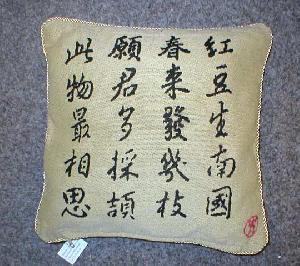 紅豆生南國
春來發幾枝
願君多採頡
此物最相思